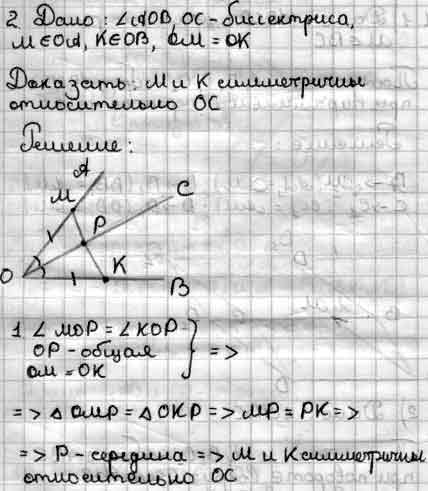 2 Дано: ∠AOB, OC - биссектриса,
M∈OA, K∈OB, OM = OK
Доказать: M и K симметричны
относительно OC
Решение:
A
M
C
P
O
K
B
1 ∠MOP = ∠KOP
OP - общая
OM = OK
} =>
=> △OMP = △OKP => MP = PK =>
=> P - середина => M и K симметричны
относительно OC